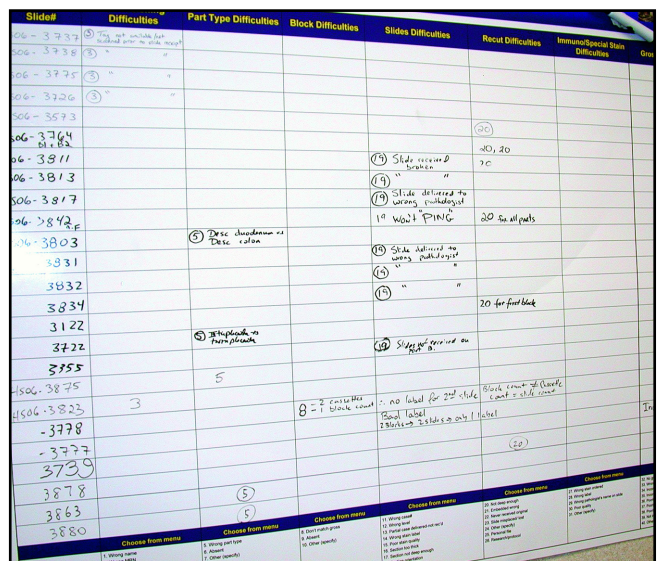 Slide# Difficulties Part Type Difficulties Block Difficulties Slides Difficulties Recut Difficulties Immuno/Special Stain Difficulties Gros
06 - 3737 (3) Tag not available/not ordered prior to slide receipt
506 - 3738 (3) " "
506 - 3775 (3) " "
506 - 3726 (3) " "
4506 - 3573
506 - 3764 (20)
B1 + B2 20, 20
06 - 3811 (19) Slide received broken 20
06 - 3813 (19) " "
506 - 3817 (19) Slide delivered to wrong pathologist
06 - 3842 19 Won't "PING" 20 for all parts
06 - 3803 (5) Desc duodenum vs Desc colon
3831 (19) Slide delivered to wrong pathologist
3832 (19) " "
3834 (19) " "
20 for first block
3122
3722 (5)
(19) on
3355
4506 - 3875 5
4506 - 3823 3 8 - 2 cassettes - 1 block count ∴ no label for 2nd slide Block count ≠ Cassette count = slide count
- 3778 Bad label 2 Blocks → 2 slides → only 1 label In
- 3777
3739 (20)
3878 (5)
3863 (5)
3880
Choose from menu
1. Wrong name
Choose from menu
5. Wrong part type
6. Absent
7. Other (specify)
Choose from menu
8. Don't match gross
9. Absent
10. Other (specify)
Choose from menu
11. Wrong cased
12. Wrong level
13. Partial case delivered not rec'd
14. Wrong stain label
15. Poor stain quality
16. Section too thick
17. Section not deep enough
Choose from menu
20. Not deep enough
21. Embedded wrong
22. Never received original
23. Slide misplaced lost
24. Other (specify)
25. Personal file
26. Research/protocol
Choose from menu
27. Wrong stain ordered
28. Wrong label
29. Wrong pathologist's name on slide
30. Poor quality
31. Other (specify)